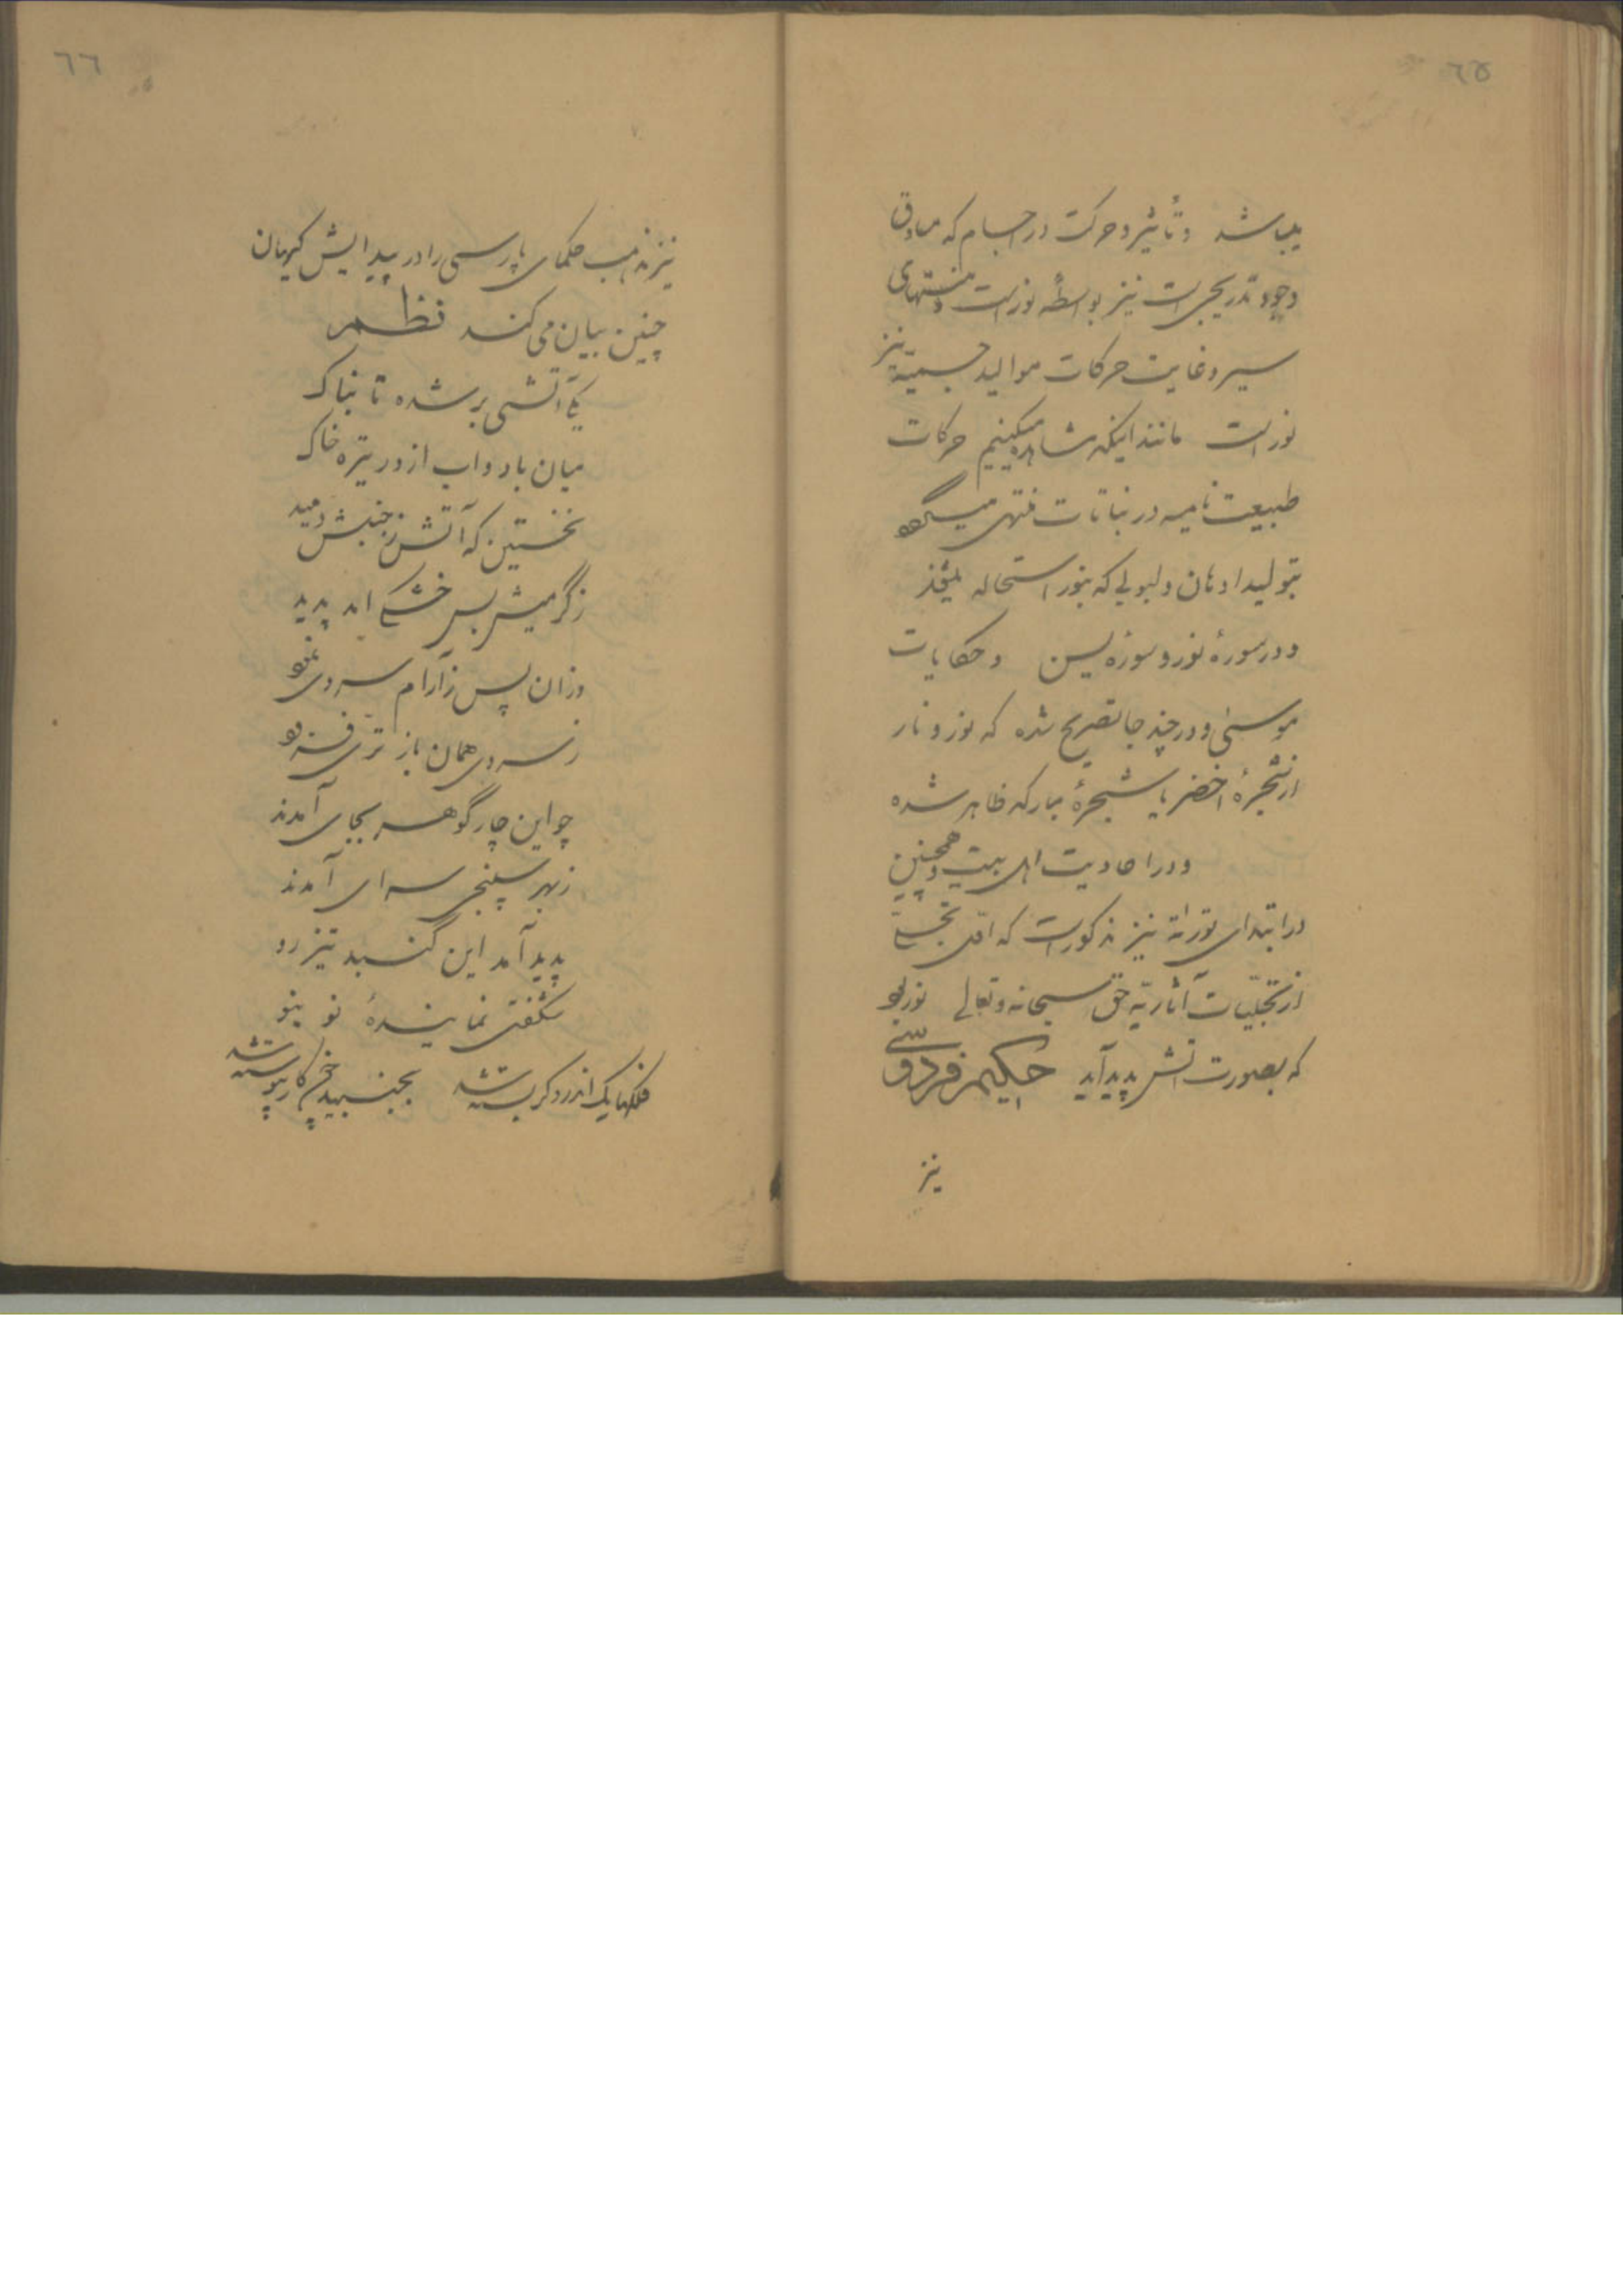 ٦٥
یباشد و تأثیر و حرکت در اجسام که مساوق
وجود تدریجی است نیز بواسطه نور است و منتهای
سیر و غایت حرکات موالید جسمیّه نیز
نور است مانند اینکه مشاهده میکنیم حرکات
طبیعت نامیه در نباتات منتهی میگردد
بتولید ادهان و لبوبی که بنور استحاله
و در سورهٔ نور و سورهٔ یسن و حکایات
موسی و در چند جا تصریح شده که نور و نار
از شجرهٔ اخضر یا شجرهٔ مبارکه ظاهر شده
و در احادیث اهل بیت و همچنین
در ابتدای توراة نیز مذکور است که اوّل تجلّی
از تجلّیات آثاریّه حق سبحانه و تعالی نور بود
که بصورت آتش پدید آمد حکیم فردوسی
نیز
٦٦
نیز مذهب حکمای پارسی را در پیدایش کیهان
چنین بیان می کند نظم
یکی آتشی بر شده تابناک
میان باد و اب از بر تیره خاک
نخستین که آتش ز جنبش دمید
ز گرمیش بس خشکی امد پدید
وزان پس ز آرام سردی نمود
ز سردی همان باز تری فزود
چو این چار گوهر بجای آمدند
ز بهر سپنجی سرای آمدند
پدید آمد این گنبد تیز رو
شگفتی نمایندهٔ نو بنو
فلکها یک اندر دگر بسته شد بجنبید چون کار پیوسته شد